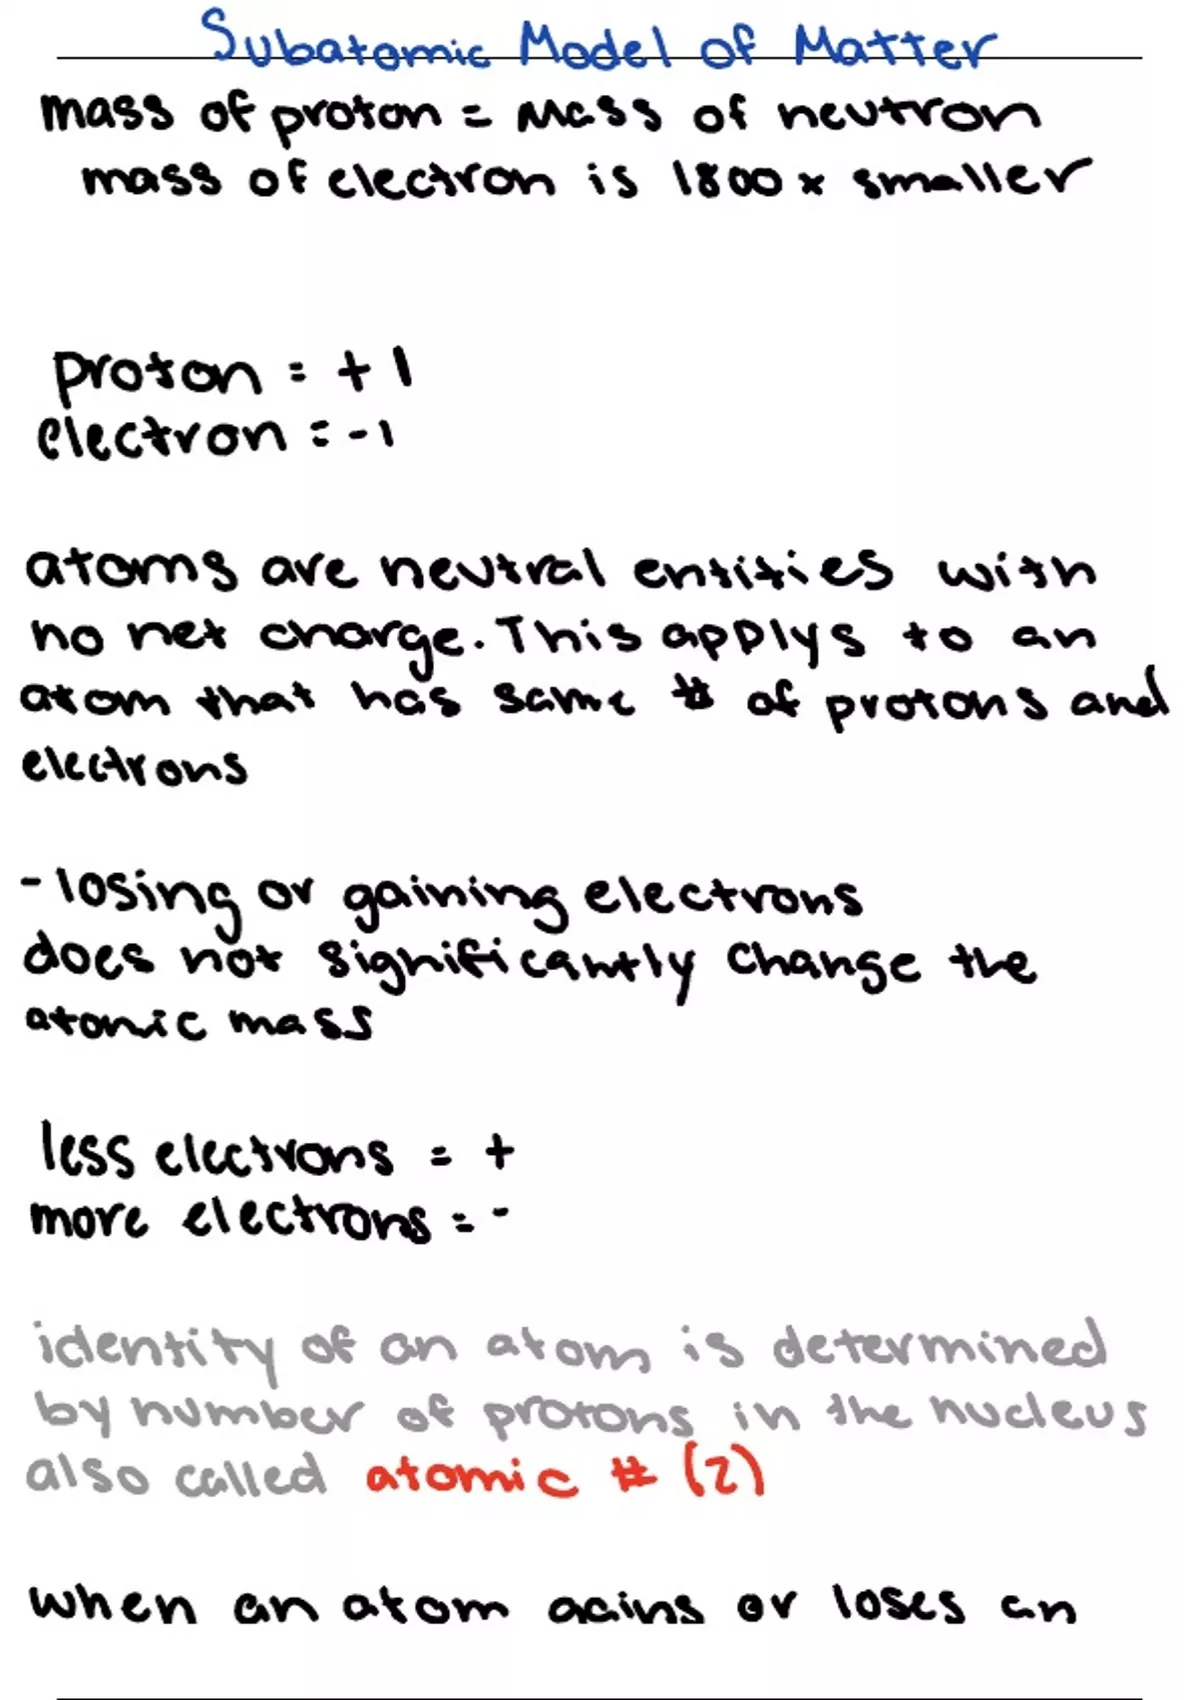 Subatomic Model of Matter
mass of proton = mass of neutron
mass of electron is 1800 x smaller
proton = +1
electron = -1
atoms are neutral entities with
no net charge. This applys to an
atom that has same # of protons and
electrons
- losing or gaining electrons
does not significantly change the
atomic mass
less electrons = +
more electrons = -
identity of an atom is determined
by number of protons in the nucleus
also called atomic # (Z)
when an atom gains or loses an